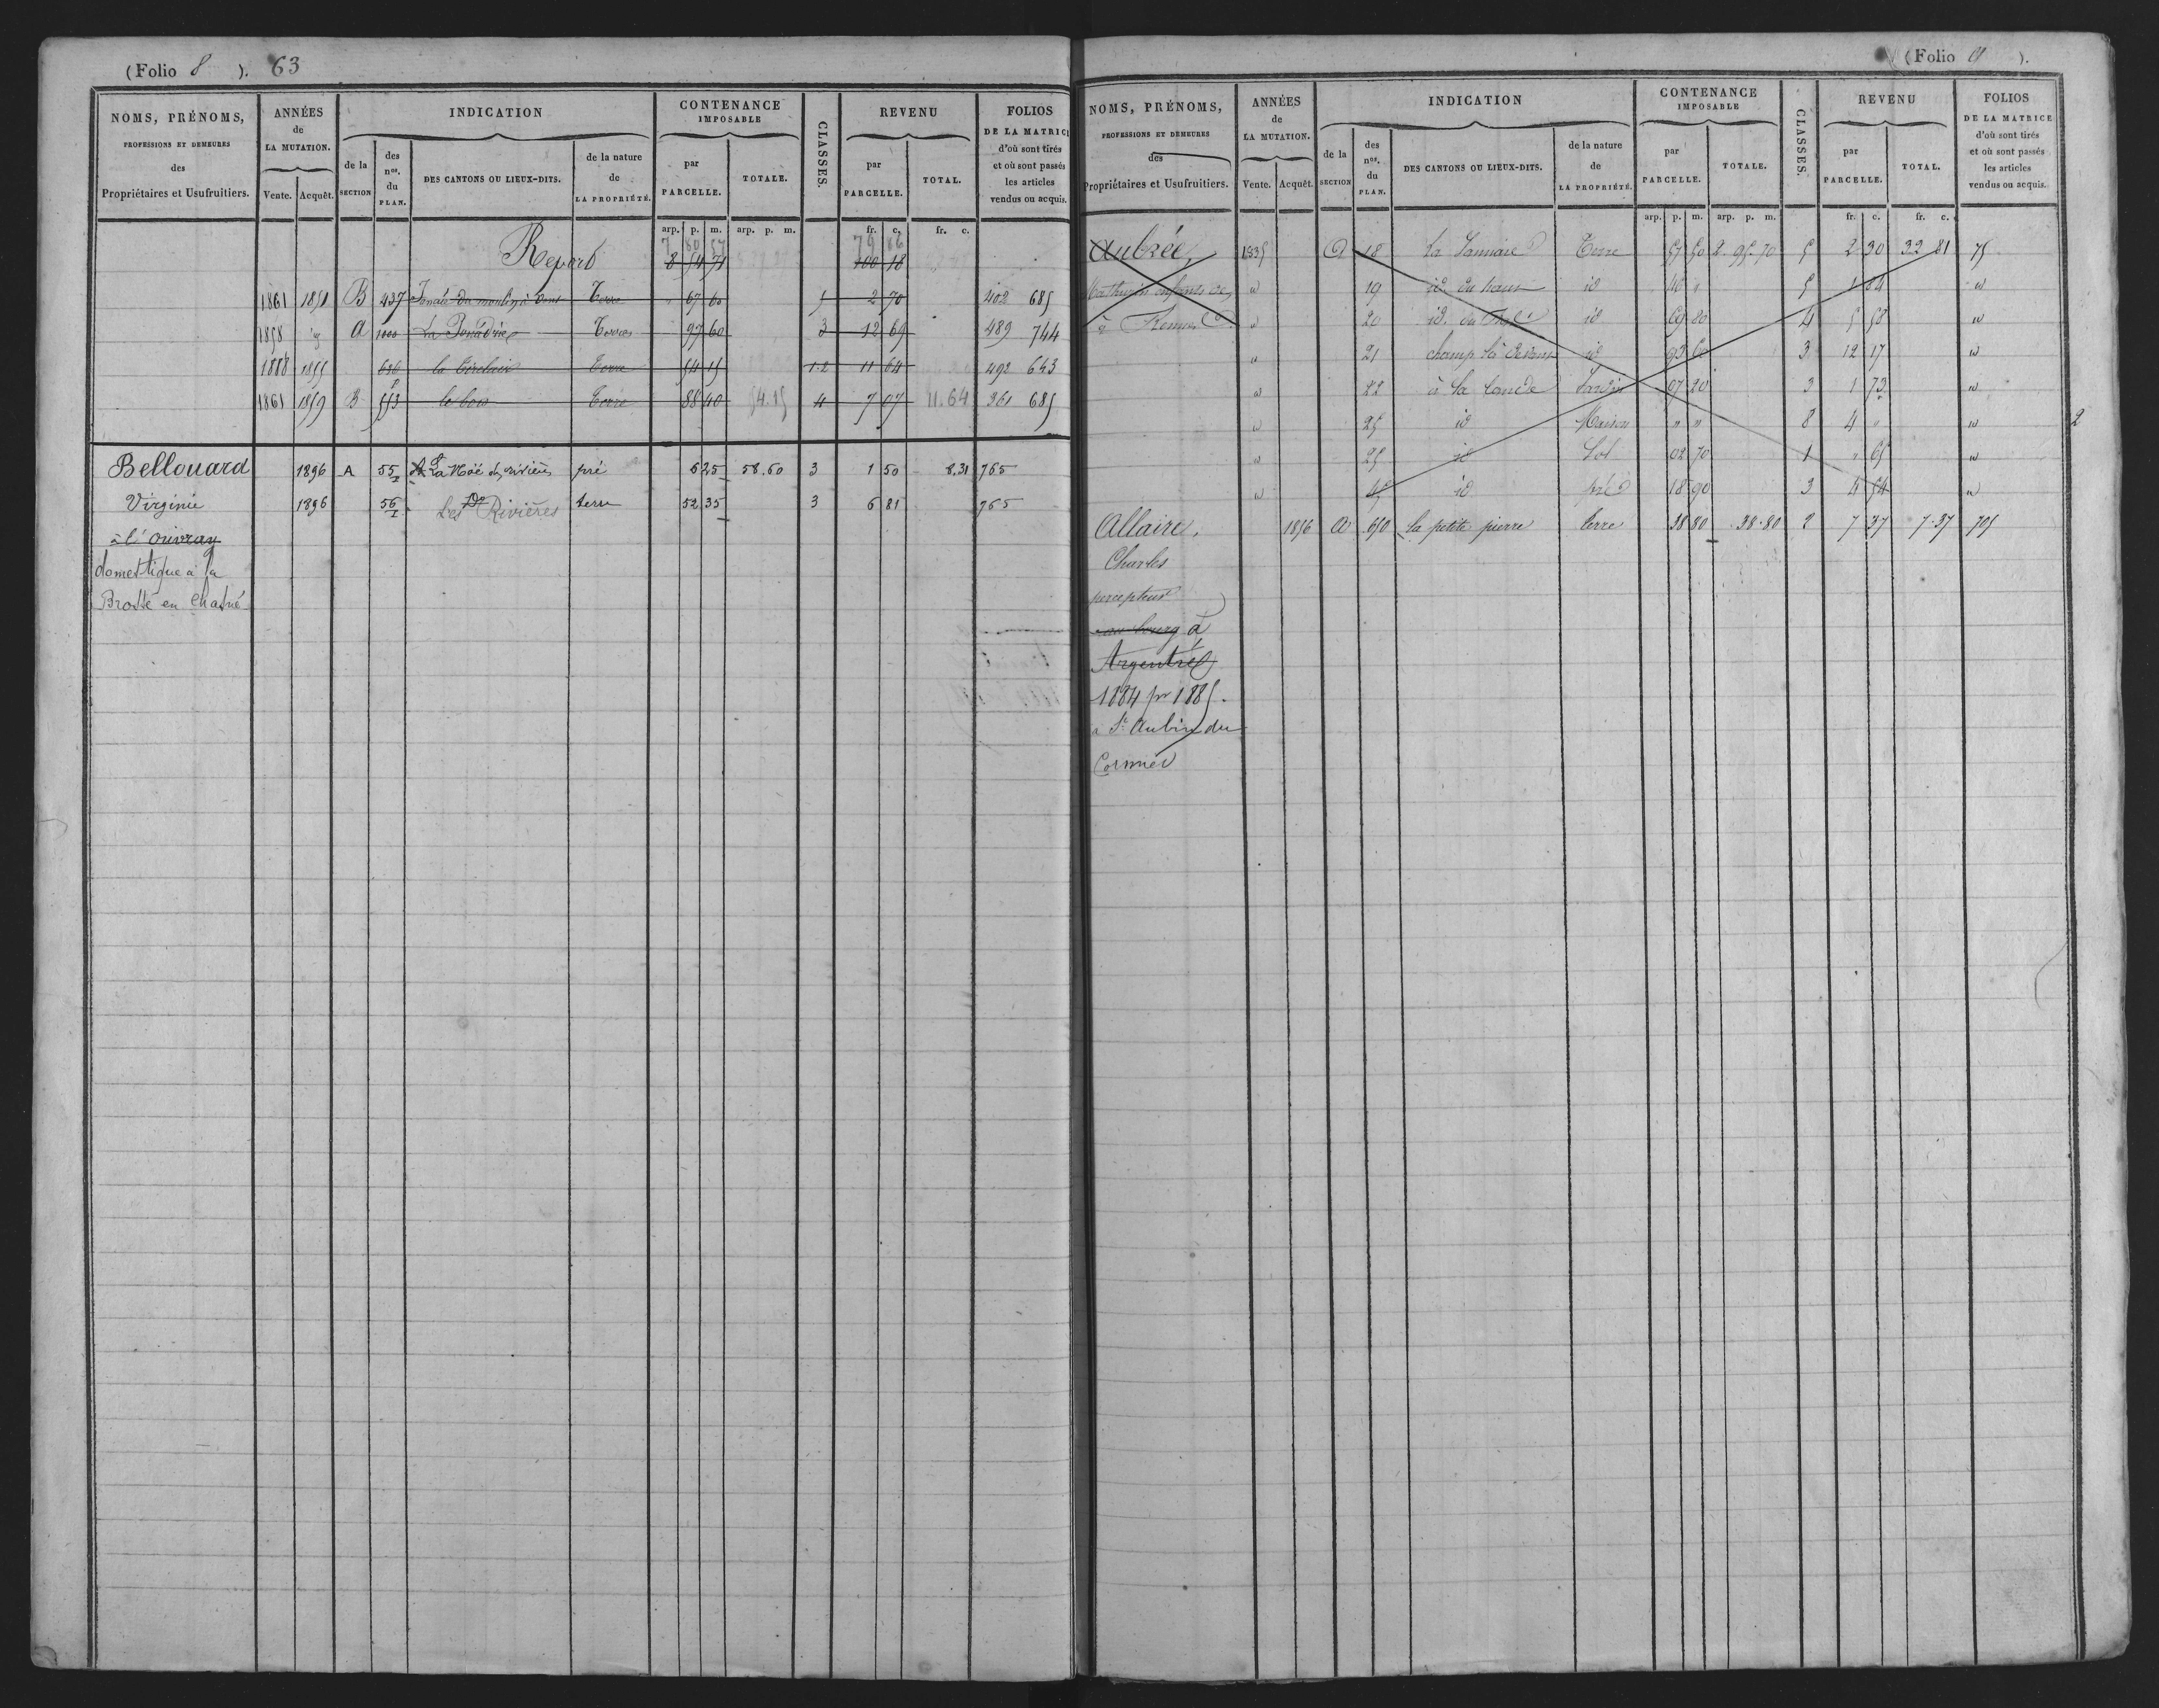 (Folio 8 ). 63
NOMS, PRÉNOMS,
PROFESSIONS ET DEMEURES
des
Propriétaires et Usufruitiers.
ANNÉES
de
LA MUTATION.
Vente. Acquêt.
INDICATION
de la
SECTION
des
nos.
du
PLAN.
DES CANTONS OU LIEUX-DITS.
de la nature
de
LA PROPRIÉTÉ.
CONTENANCE
IMPOSABLE
par
PARCELLE.
TOTALE.
CLASSES.
REVENU
par
PARCELLE.
TOTAL.
FOLIOS
DE LA MATRICE
d'où sont tirés
et où sont passés
les articles
vendus ou acquis.
arp. p. m. arp. p. m. fr. c. fr. c.
7 80 57 79 86
Report 8 54 71 100 18
1861 1851 B 437 du moulin à vent Terre 67 60 5 2 70 402 685
1858 id A 1000 La Terres 97 60 3 12 69 489 744
1888 1855 626 la Terre 54 15 1-2 11 64 492 643
1861 1859 B 553 le bois Terre 88 40 54.15 4 7 07 11.64 361 685
Bellouard 1896 A 55 La Noë des rivières pré 6 25 58.60 3 1 50 8.31 765
Virginie 1896 56 Les Rivières terre 52 35 3 6 81 765
à l'ouvray
domestique à la
Brosse en Chasné
(Folio 9 ).
NOMS, PRÉNOMS,
PROFESSIONS ET DEMEURES
des
Propriétaires et Usufruitiers.
ANNÉES
de
LA MUTATION.
Vente. Acquêt.
INDICATION
de la
SECTION
des
nos.
du
PLAN.
DES CANTONS OU LIEUX-DITS.
de la nature
de
LA PROPRIÉTÉ.
CONTENANCE
IMPOSABLE
par
PARCELLE.
TOTALE.
CLASSES.
REVENU
par
PARCELLE.
TOTAL.
FOLIOS
DE LA MATRICE
d'où sont tirés
et où sont passés
les articles
vendus ou acquis.
arp. p. m. arp. p. m. fr. c. fr. c.
Aubrée, 1835 A 18 La Terre 57 50 2. 95. 70 5 2 30 32 81 75
Mathurin enfants de id 19 id. du haut id 46 " 5 1 84 id
à Rennes id 20 id. du id 69 80 4 5 58 id
id 21 champ la devant id 93 60 3 12 17 id
id 22 à la lande Jardin 07 20 3 1 73 id
id 25 id Maison " " 8 4 " id 2
id 25 id Sol 02 70 1 " 65 id
id id pré 18 90 3 4 54 id
Allaire, 1856 A 650 la petite pierre terre 38 80 38.80 2 7 37 7.37 705
Charles
percepteur
au bourg à
Argentré
1884 pr 1885.
à St Aubin du
Cormier